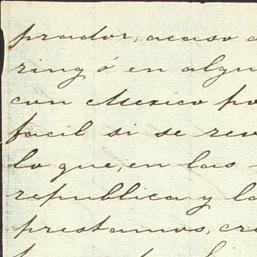 prador, acaso
ring ó en algu
con Mexico po
facil si se rev
lo que, en las
republica y la
prestamos, cre